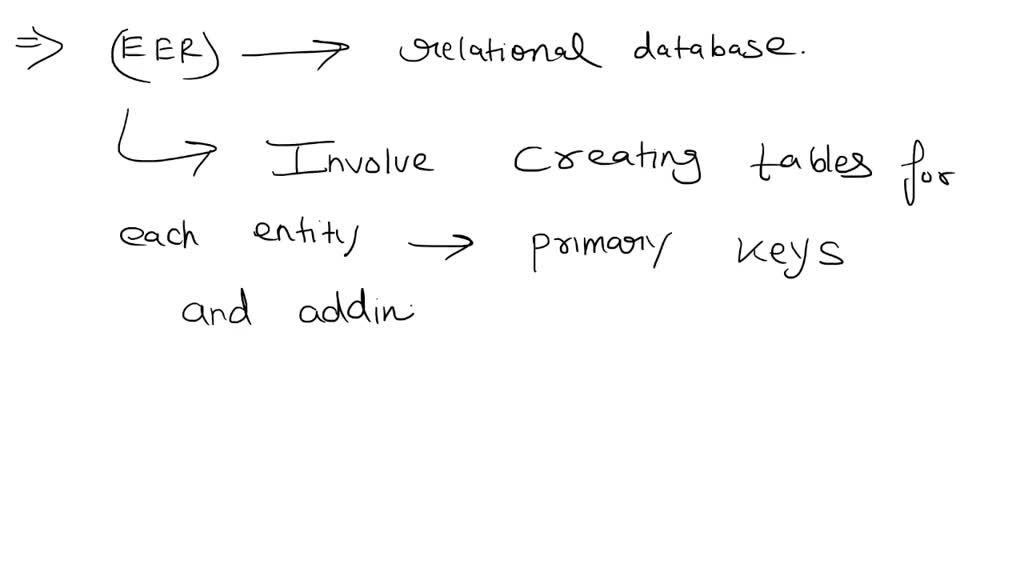 ⇒ (EER) → relational database.
↳ Involve Creating tables for
each entity → primary keys
and addin